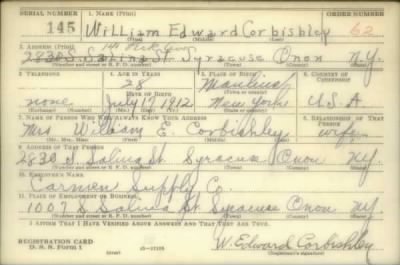 SERIAL NUMBER 1. NAME (Print) ORDER NUMBER
145 William Edward Corbishley 62
2. ADDRESS (Print)
2830 S. Salina St. Syracuse Onon N.Y.
(Number and street or R. F. D. number) (Town) (County) (State)
3. TELEPHONE 4. AGE IN YEARS 5. PLACE OF BIRTH 6. COUNTRY OF CITIZENSHIP
28 Manlius
DATE OF BIRTH
none July 17 1912 New York U.S.A
7. NAME OF PERSON WHO WILL ALWAYS KNOW YOUR ADDRESS 8. RELATIONSHIP OF THAT PERSON
Mrs William E. Corbishley wife
(Mr., Mrs., Miss) (First) (Middle) (Last)
9. ADDRESS OF THAT PERSON
2830 S. Salina St. Syracuse Onon NY.
(Number and street or R. F. D. number) (Town) (County) (State)
10. EMPLOYER'S NAME
Carmen Supply Co.
11. PLACE OF EMPLOYMENT OR BUSINESS
1007 S Salina St Syracuse Onon NY.
(Number and street or R. F. D. number) (Town) (County) (State)
I AFFIRM THAT I HAVE VERIFIED ABOVE ANSWERS AND THAT THEY ARE TRUE.
REGISTRATION CARD
D. S. S. Form 1
W. Edward Corbishley
(Registrant's signature)